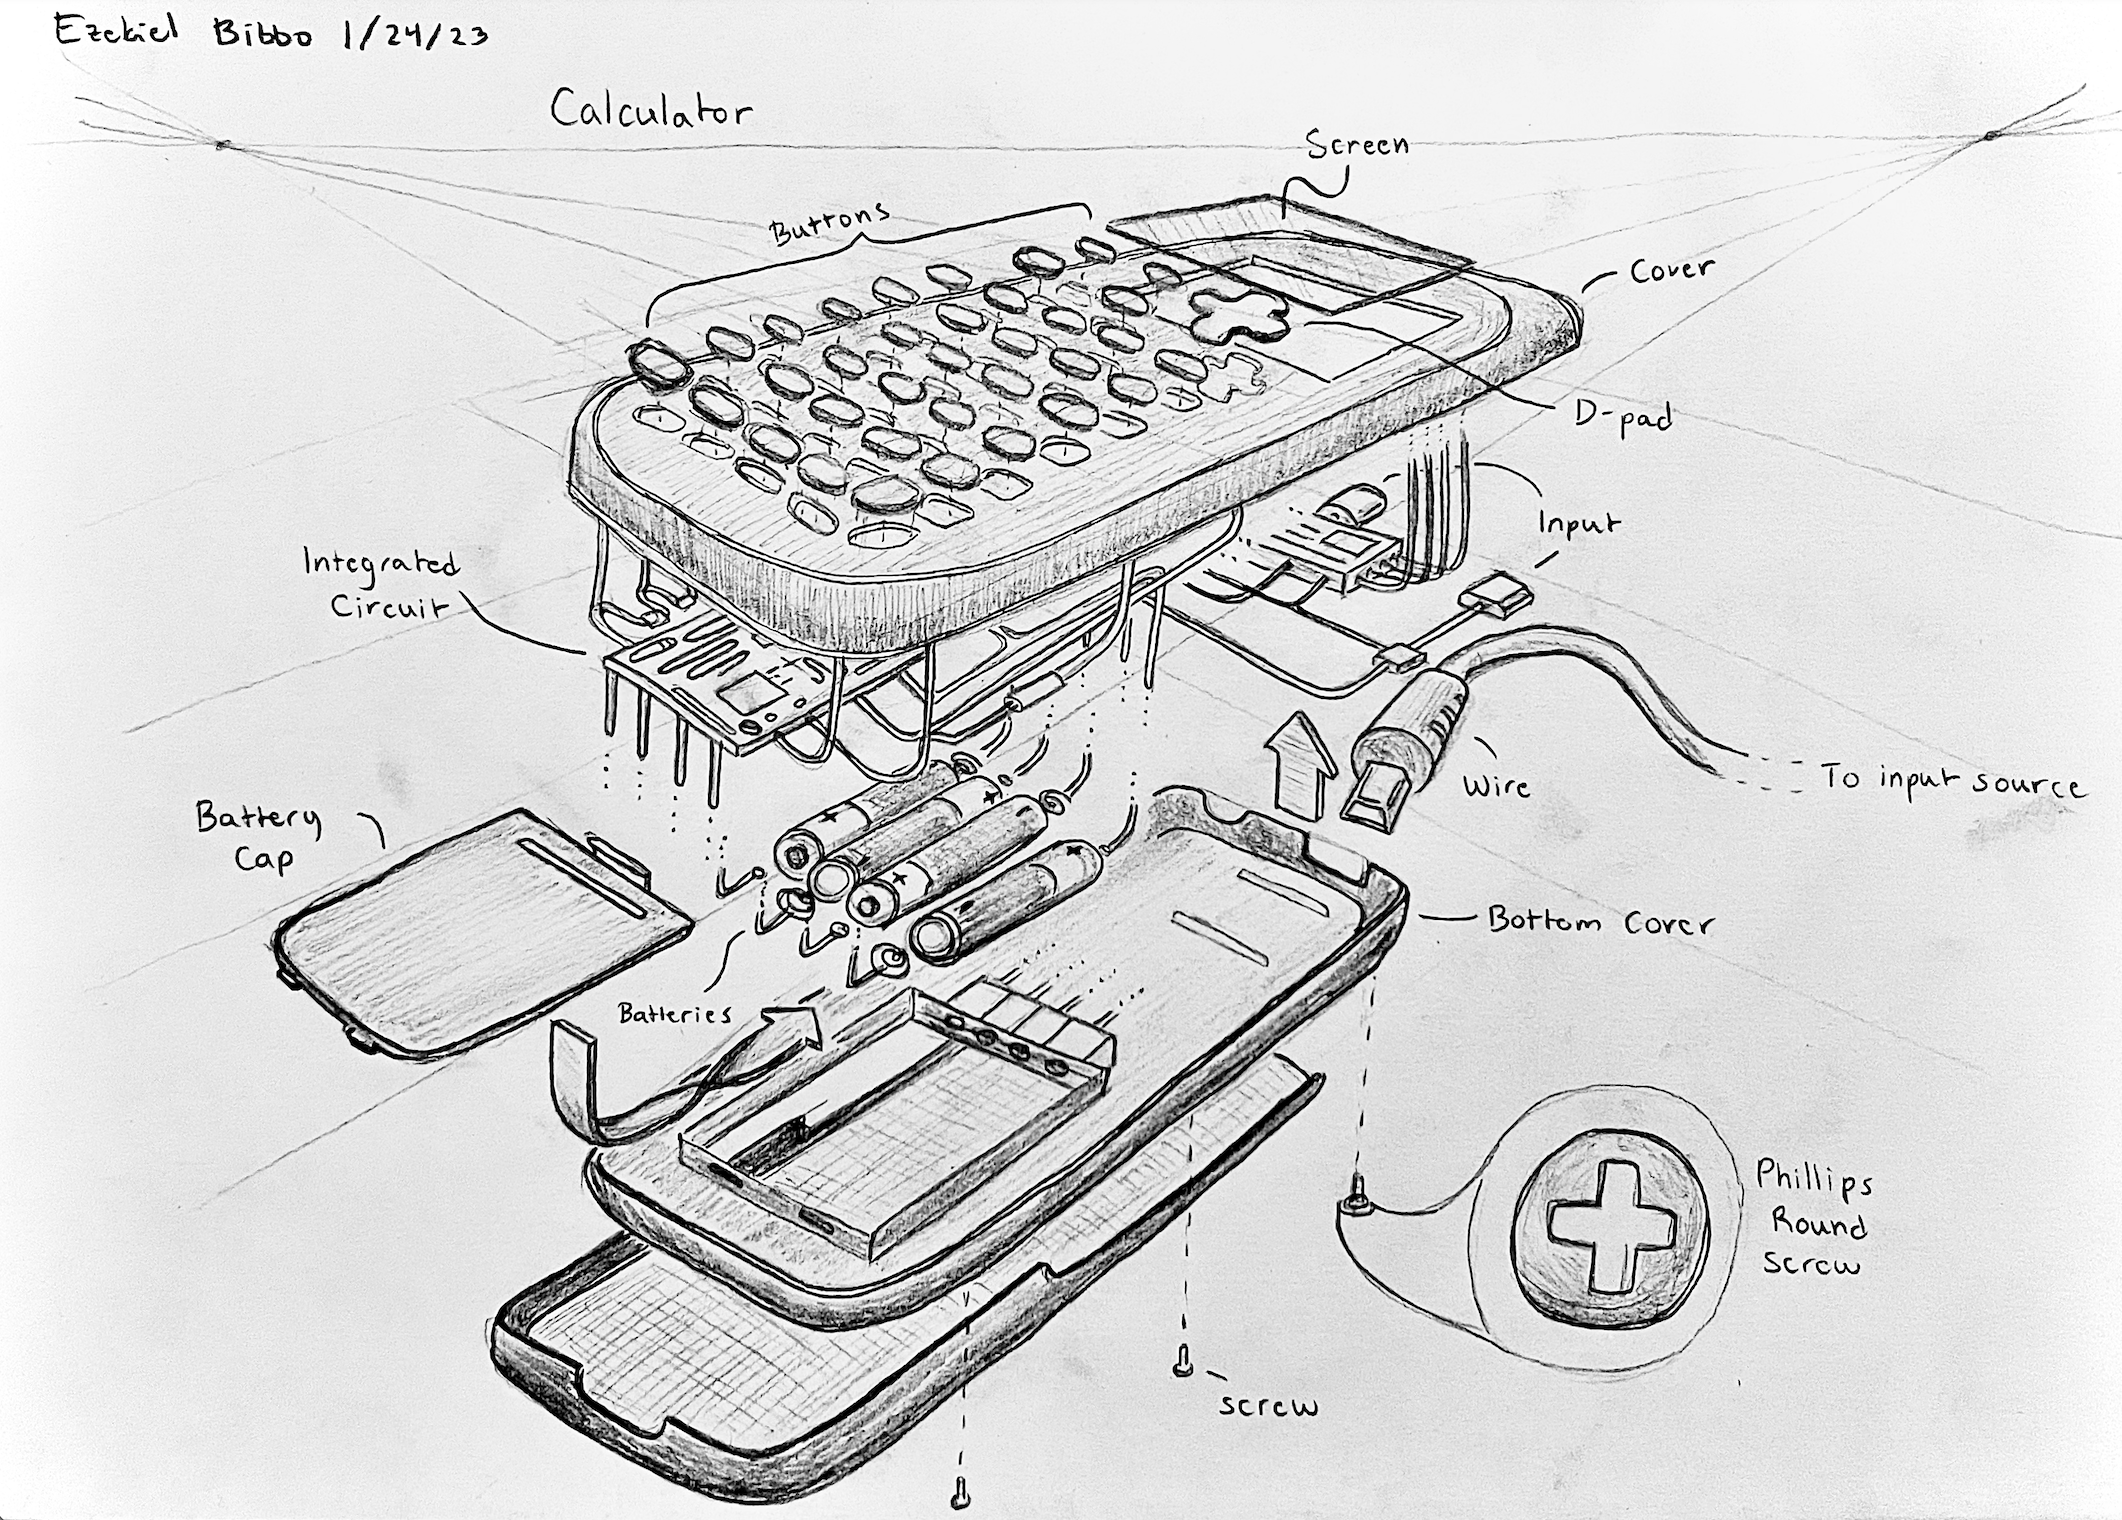 Ezekiel Bibbo 1/24/23
Calculator
Screen
Buttons
Cover
D-pad
Input
Integrated
Circuit
Wire
To input source
Battery
Cap
Bottom Cover
Batteries
Phillips
Round
screw
screw